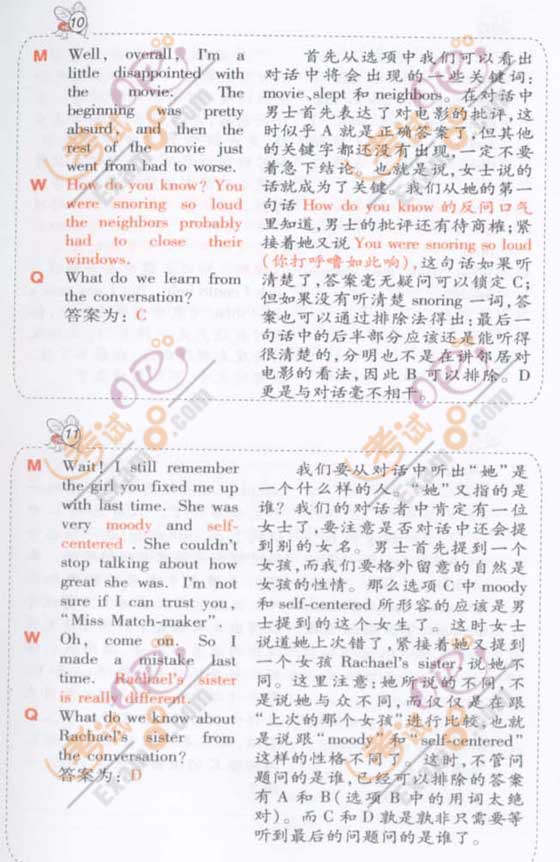 10
M Well, overall, I'm a
little disappointed with
the movie. The
beginning was pretty
absurd, and then the
rest of the movie just
went from bad to worse.
W How do you know? You
were snoring so loud
the neighbors probably
had to close their
windows.
Q What do we learn from
the conversation?
答案为：C
首先从选项中我们可以看出
对话中将会出现的一些关键词：
movie、slept 和 neighbors。在对话中
男士首先表达了对电影的批评，这
时似乎 A 就是正确答案了，但其他
的关键字都还没有出现，一定不要
着急下结论。也就是说，女士说的
话就成为了关键。我们从她的第一
句话 How do you know 的反问口气
里知道，男士的批评还有待商榷；紧
接着她又说 You were snoring so loud
（你打呼噜如此响），这句话如果听
清楚了，答案毫无疑问可以锁定 C；
但如果没有听清楚 snoring 一词，答
案也可以通过排除法得出：最后一
句话中的后半部分应该还是能听得
很清楚的，分明也不是在讲邻居对
电影的看法，因此 B 可以排除。D
更是与对话毫不相干。
11
M Wait! I still remember
the girl you fixed me up
with last time. She was
very moody and self-
centered . She couldn't
stop talking about how
great she was. I'm not
sure if I can trust you,
“Miss Match-maker”.
W Oh, come on. So I
made a mistake last
time. Rachael's sister
is really different.
Q What do we know about
Rachael's sister from
the conversation?
答案为：D
我们要从对话中听出“她”是
一个什么样的人。“她”又指的是
谁？我们的对话者中肯定有一位
女士了，要注意是否对话中还会提
到别的女名。男士首先提到一个
女孩，而我们要格外留意的自然是
女孩的性情。那么选项 C 中 moody
和 self-centered 所形容的应该是男
士提到的这个女生了。这时女士
说道她上次错了，紧接着她又提到
一个女孩 Rachael's sister，说她不
同。这里注意：她所说的不同，不
是说她与众不同，而仅仅是在跟
“上次的那个女孩”进行比较，也就
是说跟“moody”和“self-centered”
这样的性格不同了。这时，不管问
题问的是谁，已经可以排除的答案
有 A 和 B（选项 B 中的用词太绝
对）。而 C 和 D 孰是孰非只需要等
听到最后的问题问的是谁了。